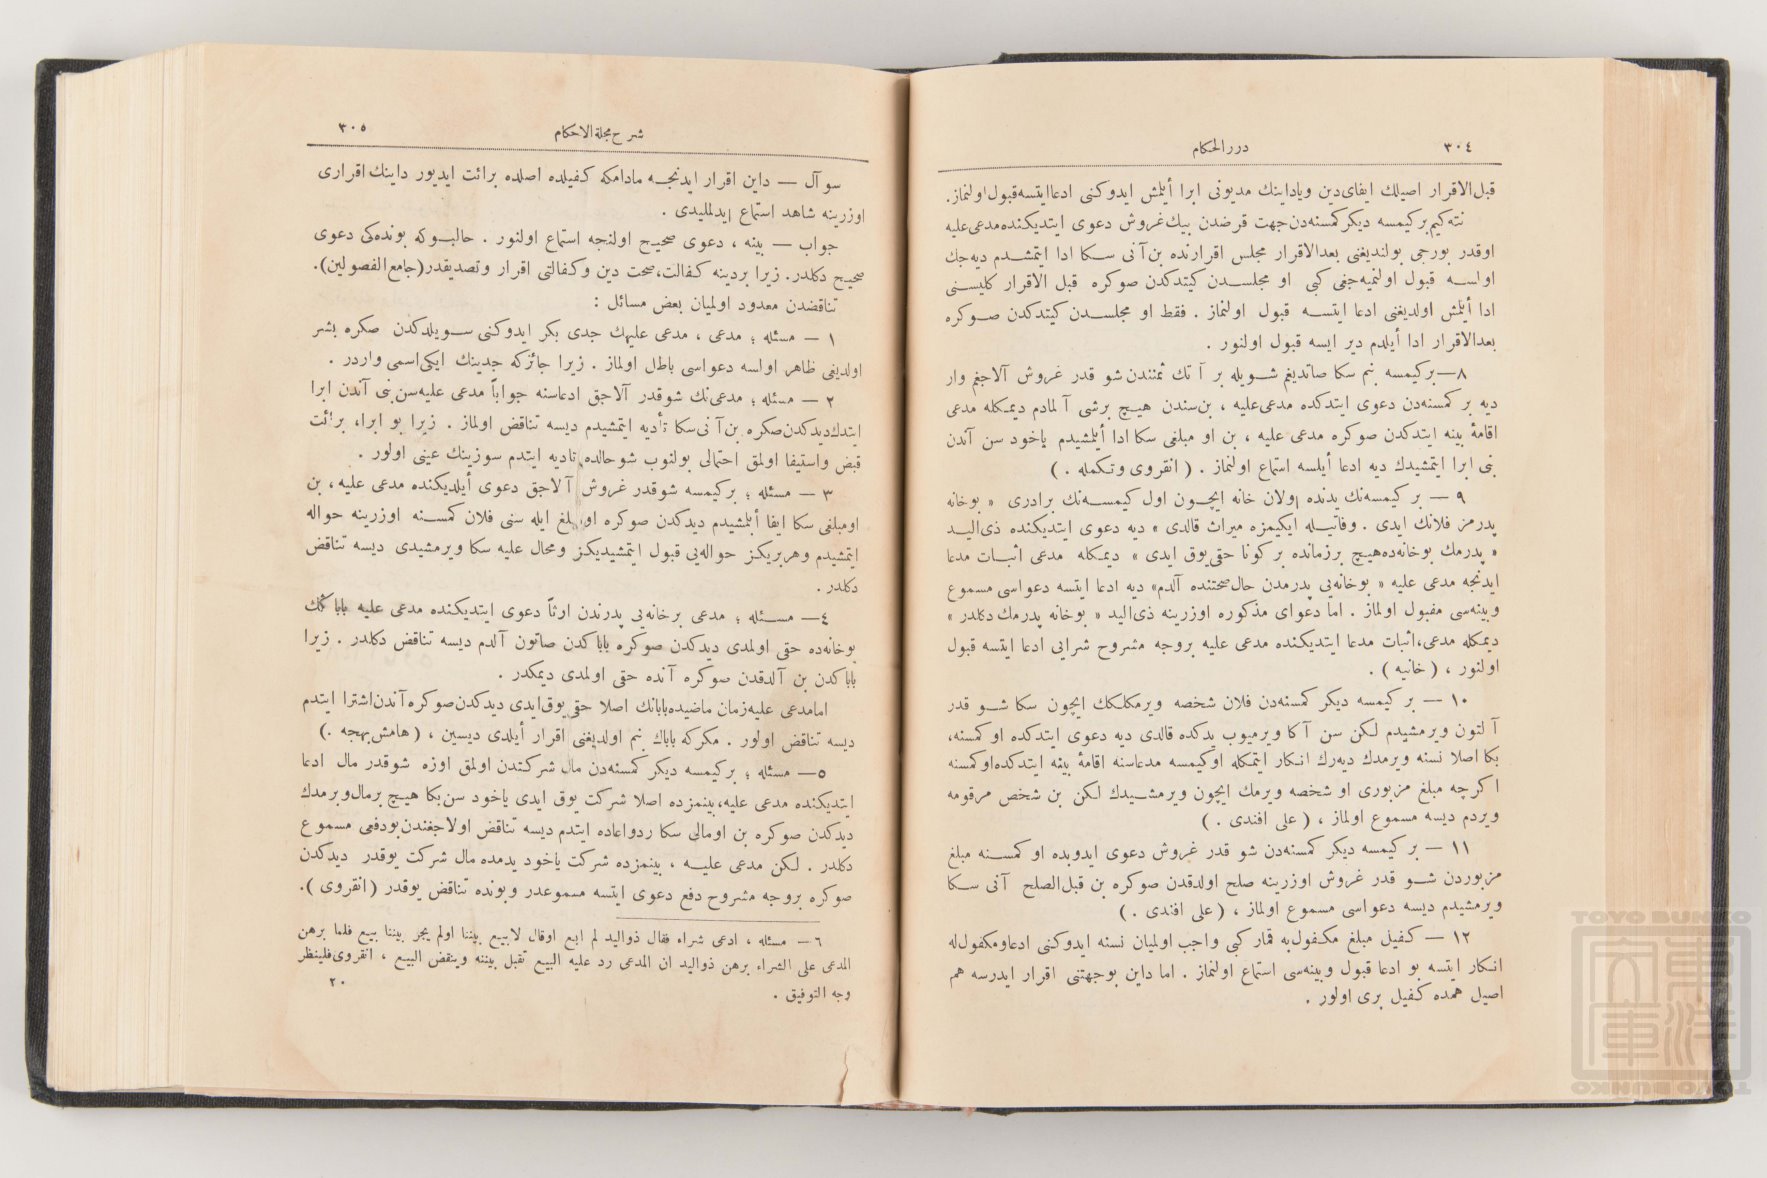 ٣٠٤
دررالحكام
قبل‌الاقرار اصيلك ايفای‌دين وياداينك مديونی ابرا أيلمش ايدوكنی ادعاايتسه‌قبول‌اولنماز.
نته‌كيم‌بركيمسه ديكركمسنه‌دن‌جهت قرضدن بيك‌غروش دعوی ايتديكنده‌مدعی‌عليه
اوقدر بورجی بولنديغنی بعدالاقرار مجلس اقرارنده بن‌آنی سكا ادا ايتمشدم ديه‌جك
اولسه قبول اولنميه‌جغی كبی او مجلسدن كيتدكدن صوكره قبل الاقرار كليسنی
ادا أيلمش اولديغنی ادعا ايتسه قبول اولنماز . فقط او مجلسدن كيتدكدن صوكره
بعدالاقرار ادا أيلدم دير ايسه قبول اولنور .
٨—بركيمسه بنم سكا صاتديغم شويله بر آتك ثمنندن شو قدر غروش آلاجغم وار
ديه بر كمسنه‌دن دعوی ايتدكده مدعی‌عليه ، بن‌سندن هيچ برشی آلمادم ديمكله مدعی
اقامهٔ بينه ايتدكدن صوكره مدعی عليه ، بن او مبلغی سكا ادا أيلمشيدم ياخود سن آندن
بنی ابرا ايتمشيدك ديه ادعا أيلسه استماع اولنماز . ( انقروی وتكمله . )
٩ — بر كيمسه‌نك يدنده اولان خانه ايچون اول كيمسه‌نك برادری « بوخانه
پدرمز فلانك ايدی . وفاتيله ايكيمزه ميراث قالدی » ديه دعوی ايتديكنده ذی‌اليد
« پدرمك بوخانه‌ده‌هيچ برزمانده بر كونا حقی‌يوق ايدی » ديمكله مدعی اثبات مدعا
ايدنجه مدعی عليه « بوخانه‌يی پدرمدن حال‌صحتنده آلدم» ديه ادعا ايتسه دعواسی مسموع
وبينه‌سی مقبول اولماز . اما دعوای مذكوره اوزرينه ذی‌اليد « بوخانه پدرمك دكلدر »
ديمكله مدعی،اثبات مدعا ايتديكنده مدعی عليه بروجه مشروح شرايی ادعا ايتسه قبول
اولنور ، ( خانيه ) .
١٠ — بر كيمسه ديكر كمسنه‌دن فلان شخصه ويرمكلكك ايچون سكا شو قدر
آلتون ويرمشيدم لكن سن آكا ويرميوب يدكده قالدی ديه دعوی ايتدكده او كمسنه،
بكا اصلا نسنه ويرمدك ديه‌رك انكار ايتمكله اوكيمسه مدعاسنه اقامهٔ بينه ايتدكده‌اوكمسنه
اكرچه مبلغ مزبوری او شخصه ويرمك ايچون ويرمشيدك لكن بن شخص مرقومه
ويردم ديسه مسموع اولماز ، ( علی افندی . )
١١ — بر كيمسه ديكر كمسنه‌دن شو قدر غروش دعوی ايدوبده او كمسنه مبلغ
مزبوردن شو قدر غروش اوزرينه صلح اولدقدن صوكره بن قبل‌الصلح آنی سكا
ويرمشيدم ديسه دعواسی مسموع اولماز ، ( علی افندی . )
١٢ — كفيل مبلغ مكفول‌به قمار كبی واجب اولميان نسنه ايدوكنی ادعاومكفول‌له
انكار ايتسه بو ادعا قبول وبينه‌سی استماع اولنماز . اما داين بوجهتنی اقرار ايدرسه هم
اصيل همده كفيل بری اولور .
شرح مجلة الاحكام
٣٠٥
سوآل — داين اقرار ايدنجه مادامكه كفيلده اصلده برائت ايديور داينك اقراری
اوزرينه شاهد استماع ايدلمليدی .
جواب — بينه ، دعوی صحيح اولنجه استماع اولنور . حالبوكه بونده‌كی دعوی
صحيح دكلدر. زيرا بردينه كفالت،صحت دين وكفالتی اقرار وتصديقدر(جامع‌الفصولين).
تناقضدن معدود اولميان بعض مسائل :
١ — مسئله ؛ مدعی ، مدعی عليهك جدی بكر ايدوكنی سويلدكدن صكره بشر
اولديغی ظاهر اولسه دعواسی باطل اولماز . زيرا جائزكه جدينك ايكی‌اسمی واردر .
٢ — مسئله ؛ مدعی‌نك شوقدر آلاجق ادعاسنه جواباً مدعی عليه‌سن‌بنی آندن ابرا
ايتدك‌ديدكدن‌صكره بن‌آنی‌سكا تأديه ايتمشيدم ديسه تناقض اولماز . زيرا بو ابرا، برائت
قبض واستيفا اولمق احتمالی بولنوب شوحالده تاديه ايتدم سوزينك عينی اولور .
٣ — مسئله ؛ بركيمسه شوقدر غروش آلاجق دعوی أيلديكنده مدعی عليه ، بن
اومبلغی سكا ايفا أيلمشيدم ديدكدن صوكره اومبلغ ايله سنی فلان كمسنه اوزرينه حواله
ايتمشيدم وهربريكز حواله‌يی قبول ايتمشيديكز ومحال عليه سكا ويرمشيدی ديسه تناقض
دكلدر .
٤— مسئله ؛ مدعی برخانه‌يی پدرندن ارثاً دعوی ايتديكنده مدعی عليه بابا كك
بوخانه‌ده حقی اولمدی ديدكدن صوكره باباكدن صاتون آلدم ديسه تناقض دكلدر . زيرا
باباكدن بن آلدقدن صوكره آنده حقی اولمدی ديمكدر .
امامدعی عليه‌زمان ماضيده‌بابانك اصلا حقی‌يوق‌ايدی ديدكدن‌صوكره‌آندن‌اشترا ايتدم
ديسه تناقض اولور . مكركه باباك بنم اولديغنی اقرار أيلدی ديسين ، ( هامش‌بهجه . )
٥— مسئله ؛ بركيمسه ديكر كمسنه‌دن مال شركتدن اولمق اوزه شوقدر مال ادعا
ايتديكنده مدعی عليه،بينمزده اصلا شركت يوق ايدی ياخود سن‌بكا هيچ برمال‌ويرمدك
ديدكدن صوكره بن اومالی سكا ردواعاده ايتدم ديسه تناقض اولاجغندن‌بودفعی مسموع
دكلدر . لكن مدعی عليه ، بينمزده شركت ياخود يدمده مال شركت يوقدر ديدكدن
صوكره بروجه مشروح دفع دعوی ايتسه مسموعدر وبونده تناقض يوقدر ( انقروی ).
٦— مسئله ، ادعی شراء فقال ذواليد لم ابع اوقال لابيع بيننا اولم يجر بيننا بيع فلما برهن
المدعی علی الشراء برهن ذواليد ان المدعی رد عليه البيع تقبل بينته وينقض البيع ، انقروی‌فلينظر
وجه التوفيق .
٢٠
TOYO BUNKO
東洋文庫
TOYO BUNKO